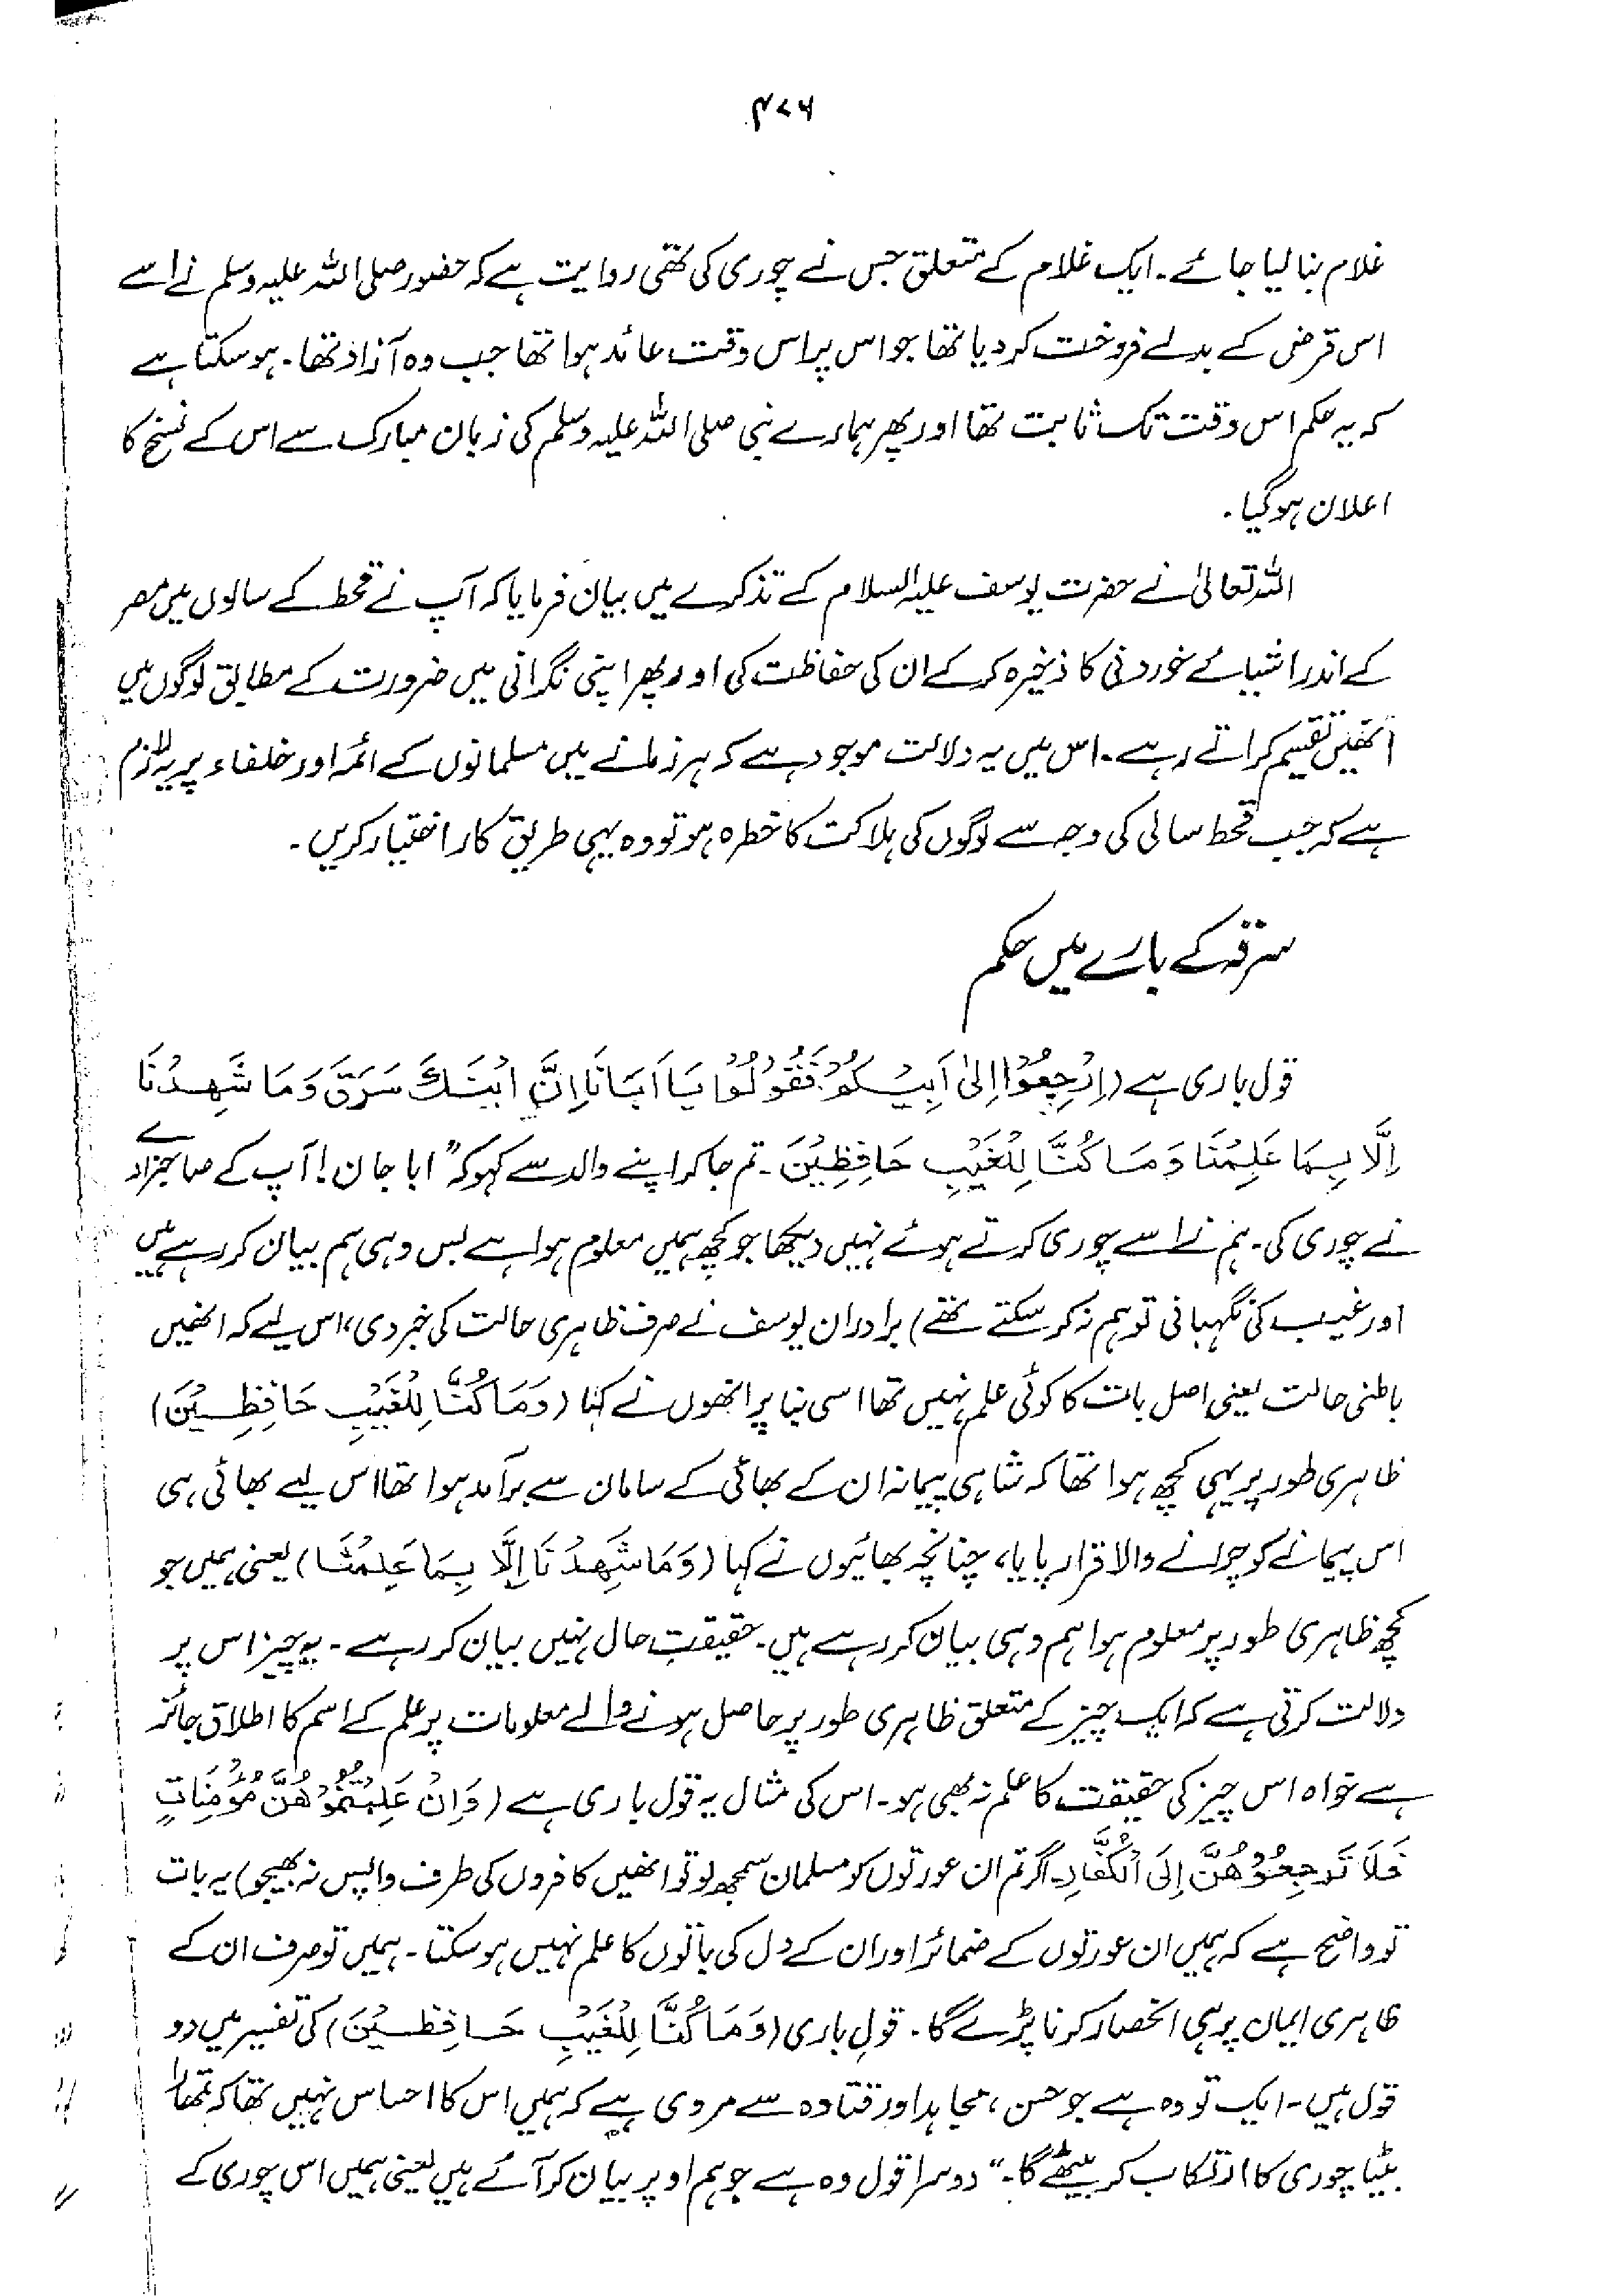 ۴۷۶
غلام بنا لیا جائے۔ ایک غلام کے متعلق جس نے چوری کی تھی روایت ہے کہ حضور صلی اللہ علیہ وسلم نے اسے
اس قرض کے بدلے فروخت کر دیا تھا جو اس پر اس وقت عائد ہوا تھا جب وہ آزاد تھا۔ ہو سکتا ہے
کہ یہ حکم اس وقت تک ثابت تھا اور پھر ہمارے نبی صلی اللہ علیہ وسلم کی زبان مبارک سے اس کے نسخ کا
اعلان ہو گیا۔
اللہ تعالیٰ نے حضرت یوسف علیہ السلام کے تذکرے میں بیان فرمایا کہ آپ نے قحط کے سالوں میں مصر
کے اندر اشیائے خوردنی کا ذخیرہ کر کے ان کی حفاظت کی اور پھر اپنی نگرانی میں ضرورت کے مطابق لوگوں میں
انھیں تقسیم کراتے رہے۔ اس میں یہ دلالت موجود ہے کہ ہر زمانے میں مسلمانوں کے ائمہ اور خلفاء پر یہ لازم
ہے کہ جب قحط سالی کی وجہ سے لوگوں کی ہلاکت کا خطرہ ہو تو وہ یہی طریق کار اختیار کریں۔
سرقہ کے بارے میں حکم
قول باری ہے (اِرْجِعُوْا اِلیٰ اَبِیْكُمْ فَقُوْلُوْا یَا اَبَانَا اِنَّ ابْنَكَ سَرَقَ وَمَا شَهِدْنَا
اِلَّا بِمَا عَلِمْنَا وَمَا كُنَّا لِلْغَیْبِ حَافِظِیْنَ۔ تم جا کر اپنے والد سے کہو کہ ”ابا جان! آپ کے صاحبزادے
نے چوری کی۔ ہم نے اسے چوری کرتے ہوئے نہیں دیکھا جو کچھ ہمیں معلوم ہوا ہے بس وہی ہم بیان کر رہے ہیں
اور غیب کی نگہبانی تو ہم نہ کر سکتے تھے) برادران یوسف نے صرف ظاہری حالت کی خبر دی، اس لیے کہ انھیں
باطنی حالت یعنی اصل بات کا کوئی علم نہیں تھا اسی بنا پر انھوں نے کہا (وَمَا كُنَّا لِلْغَیْبِ حَافِظِیْنَ)
ظاہری طور پر یہی کچھ ہوا تھا کہ شاہی پیمانہ ان کے بھائی کے سامان سے برآمد ہوا تھا اس لیے بھائی ہی
اس پیمانے کو چرانے والا قرار پایا، چنانچہ بھائیوں نے کہا (وَمَا شَهِدْنَا اِلَّا بِمَا عَلِمْنَا) یعنی ہمیں جو
کچھ ظاہری طور پر معلوم ہوا ہم وہی بیان کر رہے ہیں۔ حقیقتِ حال نہیں بیان کر رہے۔ یہ چیز اس پر
دلالت کرتی ہے کہ ایک چیز کے متعلق ظاہری طور پر حاصل ہونے والے معلومات پر علم کے اسم کا اطلاق جائز
ہے خواہ اس چیز کی حقیقت کا علم نہ بھی ہو۔ اس کی مثال یہ قول باری ہے (وَاِنْ عَلِمْتُمُوْهُنَّ مُؤْمِنَاتٍ
فَلَا تَرْجِعُوْهُنَّ اِلَی الْكُفَّارِ۔ اگر تم ان عورتوں کو مسلمان سمجھ لو تو انھیں کافروں کی طرف واپس نہ بھیجو) یہ بات
تو واضح ہے کہ ہمیں ان عورتوں کے ضمائر اور ان کے دل کی باتوں کا علم نہیں ہو سکتا۔ ہمیں تو صرف ان کے
ظاہری ایمان پر ہی انحصار کرنا پڑے گا۔ قولِ باری (وَمَا كُنَّا لِلْغَیْبِ حَافِظِیْنَ) کی تفسیر میں دو
قول ہیں۔ ایک تو وہ ہے جو حسن، مجاہد اور قتادہ سے مروی ہے کہ ہمیں اس کا احساس نہیں تھا کہ تمھارا
بیٹا چوری کا ارتکاب کر بیٹھے گا۔“ دوسرا قول وہ ہے جو ہم اوپر بیان کر آئے ہیں یعنی ہمیں اس چوری کے